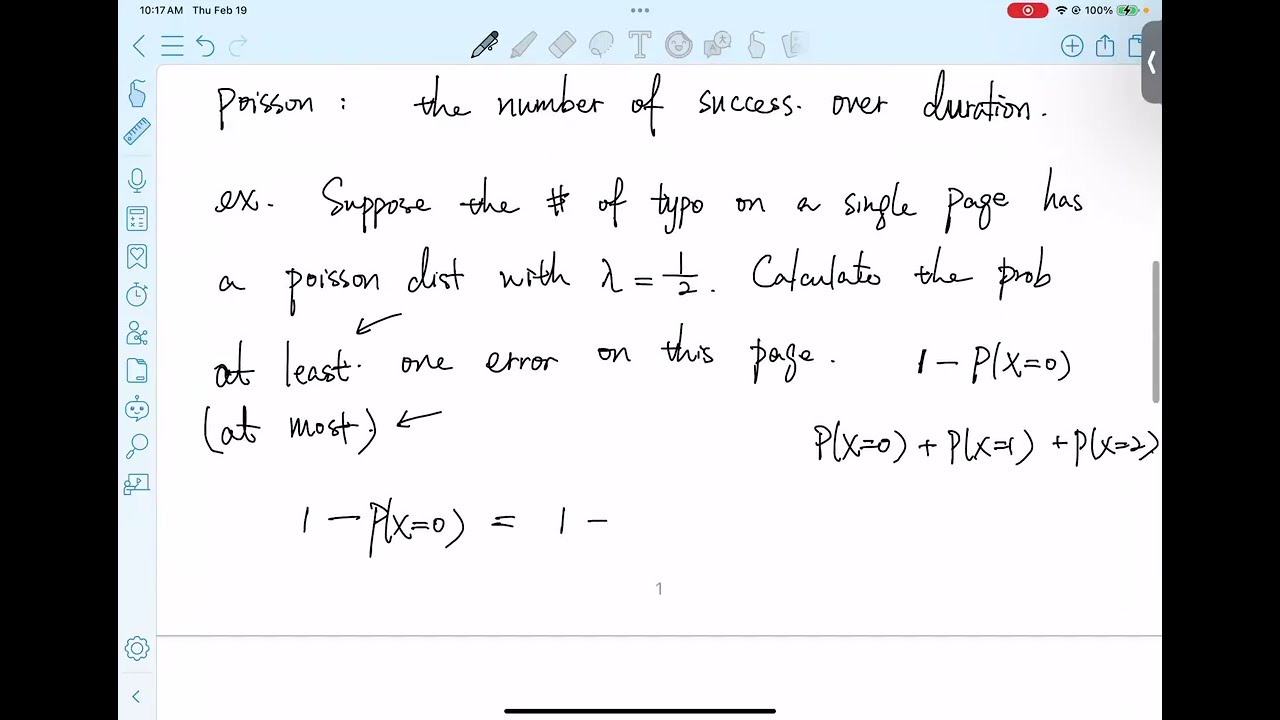 10:17 AM Thu Feb 19
100%
Poisson : the number of success. over duration.
ex. Suppose the # of typo on a single page has
a poisson dist with λ = 1/2. Calculate the prob
at least. one error on this page. 1 − P(X=0)
(at most.)
P(X=0) + P(X=1) + P(X=2)
1 − P(X=0) = 1 −
1